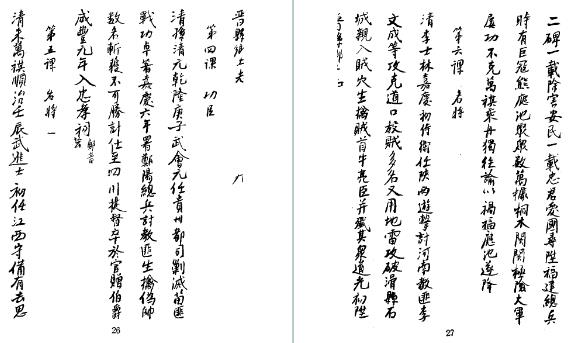 第四課 功臣
清孫清元乾隆庚子武會元任貴州都司剿滅苗匪
戰功卓著嘉慶六年署鄖陽總兵討教匪生擒偽帥
數名斬獲不可勝計仕至四川提督卒於官贈伯爵
咸豐元年入忠孝祠
第五課 名將一
清朱萬祺順治壬辰武進士 初任江西守備有去思
26
二碑一載除害安民一載忠君愛國尋陞福建總兵
時有巨寇熊庭池聚眾數萬據桐木關關極險大軍
屢功不克萬祺乘丹獨往諭以禍福庭池遂降
第六課 名將
清李士林嘉慶初侍衛任陝西遊擊討河南教匪李
文成等攻克道口殺賊多名又用地雷攻破滑縣石
城親入賊穴生擒賊首牛亮臣并殲其眾道光初陞
27